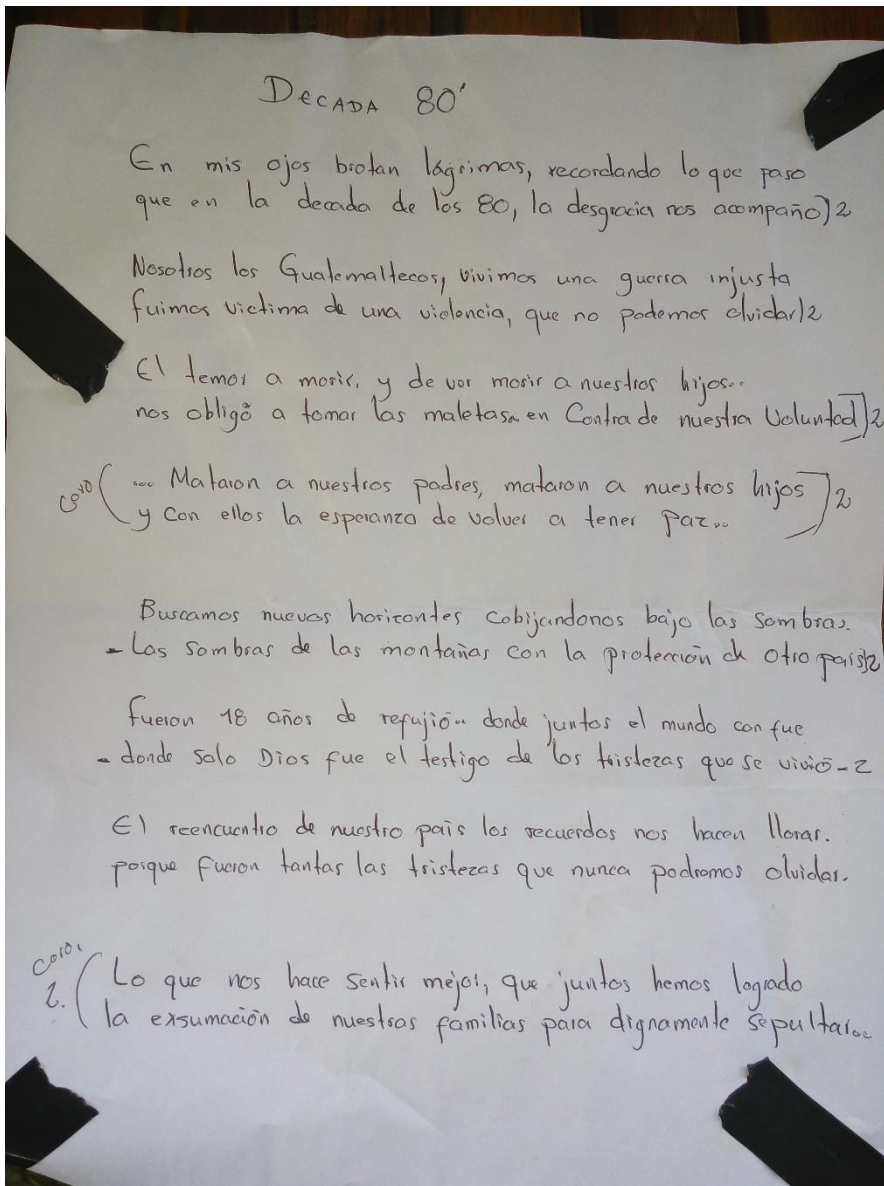 DECADA 80'
En mis ojos brotan lágrimas, recordando lo que paso
que en la decada de los 80, la desgracia nos acompaño)2
Nosotros los Guatemaltecos, vivimos una guerra injusta
fuimos victima de una violencia, que no podemos olvidar)2
El temor a morir, y de ver morir a nuestros hijos...
nos obligó a tomar las maletas en Contra de nuestra Voluntad]2
Coro (... Mataron a nuestros padres, mataron a nuestros hijos
y con ellos la esperanza de volver a tener paz..)2
Buscamos nuevos horizontes cobijandonos bajo las sombras.
- Las sombras de las montañas con la protección de otro pais)2
fueron 18 años de refujió.. donde juntos el mundo con fue
- donde solo Dios fue el testigo de las tristezas que se vivió-2
El reencuentro de nuestro pais los recuerdos nos hacen llorar.
porque fueron tantas las tristezas que nunca podremos olvidar.
Coro. 2. (Lo que nos hace sentir mejor, que juntos hemos logrado
la exsumación de nuestras familias para dignamente sepultar...